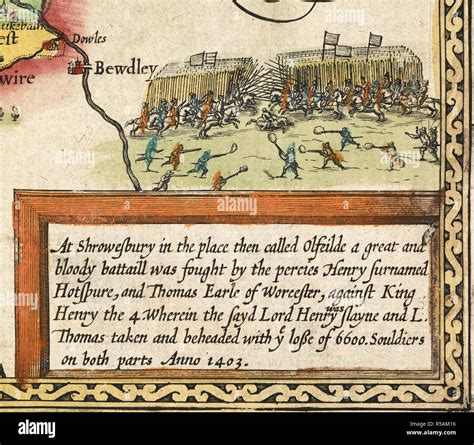 Dowles
Bewdley
wire
At Shrowesbury in the place then called Olfeilde a great and
bloody battaill was fought by the percies Henry surnamed
Hotspure, and Thomas Earle of Worcester, against King
Henry the 4. Wherein the sayd Lord Henry was slayne and L.
Thomas taken and beheaded with yᵉ loße of 6600. Souldiers
on both parts Anno 1403.
alamy
Image ID: R5AM16
www.alamy.com